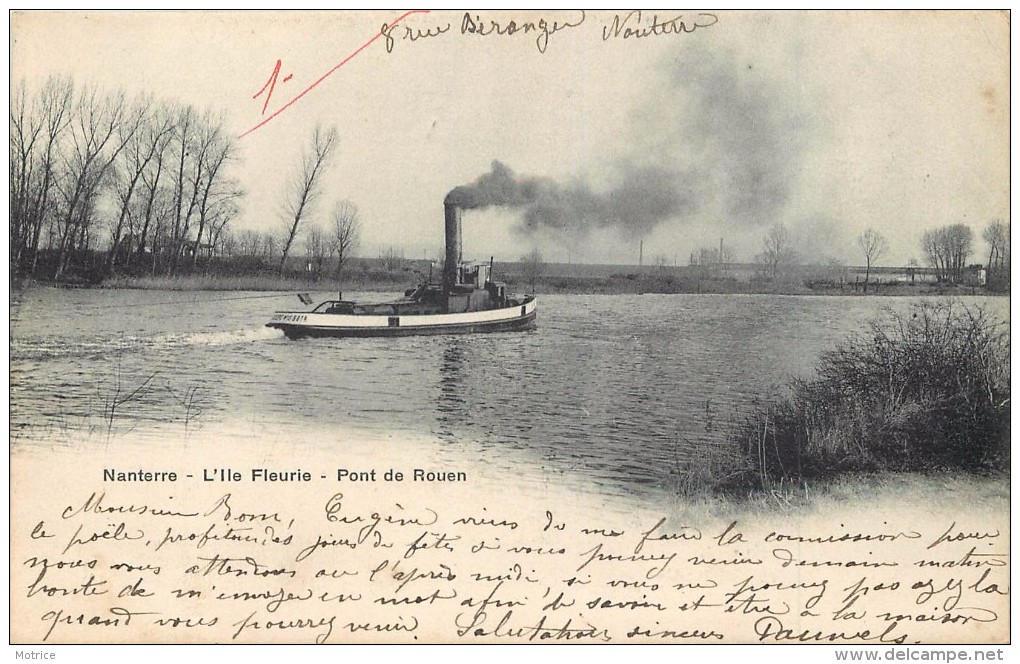 8 rue Béranger Nanterre
1-
Nanterre - L'Ile Fleurie - Pont de Rouen
Monsieur Bom, Eugène viens de me faire la comission pour
le poële, profitons des jours de fêtes si vous pouvez venir demain matin
nous vous attendons ou l'après midi, si vous ne pouvez pas ayez la
bonté de m'envoyer un mot afin de savoir et être à la maison
quand vous pourrez venir. Salutations sincères Pauwels.
Motrice
www.delcampe.net